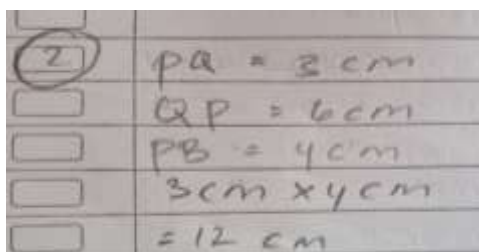 2 PQ = 3 cm
QP = 6cm
PB = 4cm
3cm x 4cm
= 12 cm